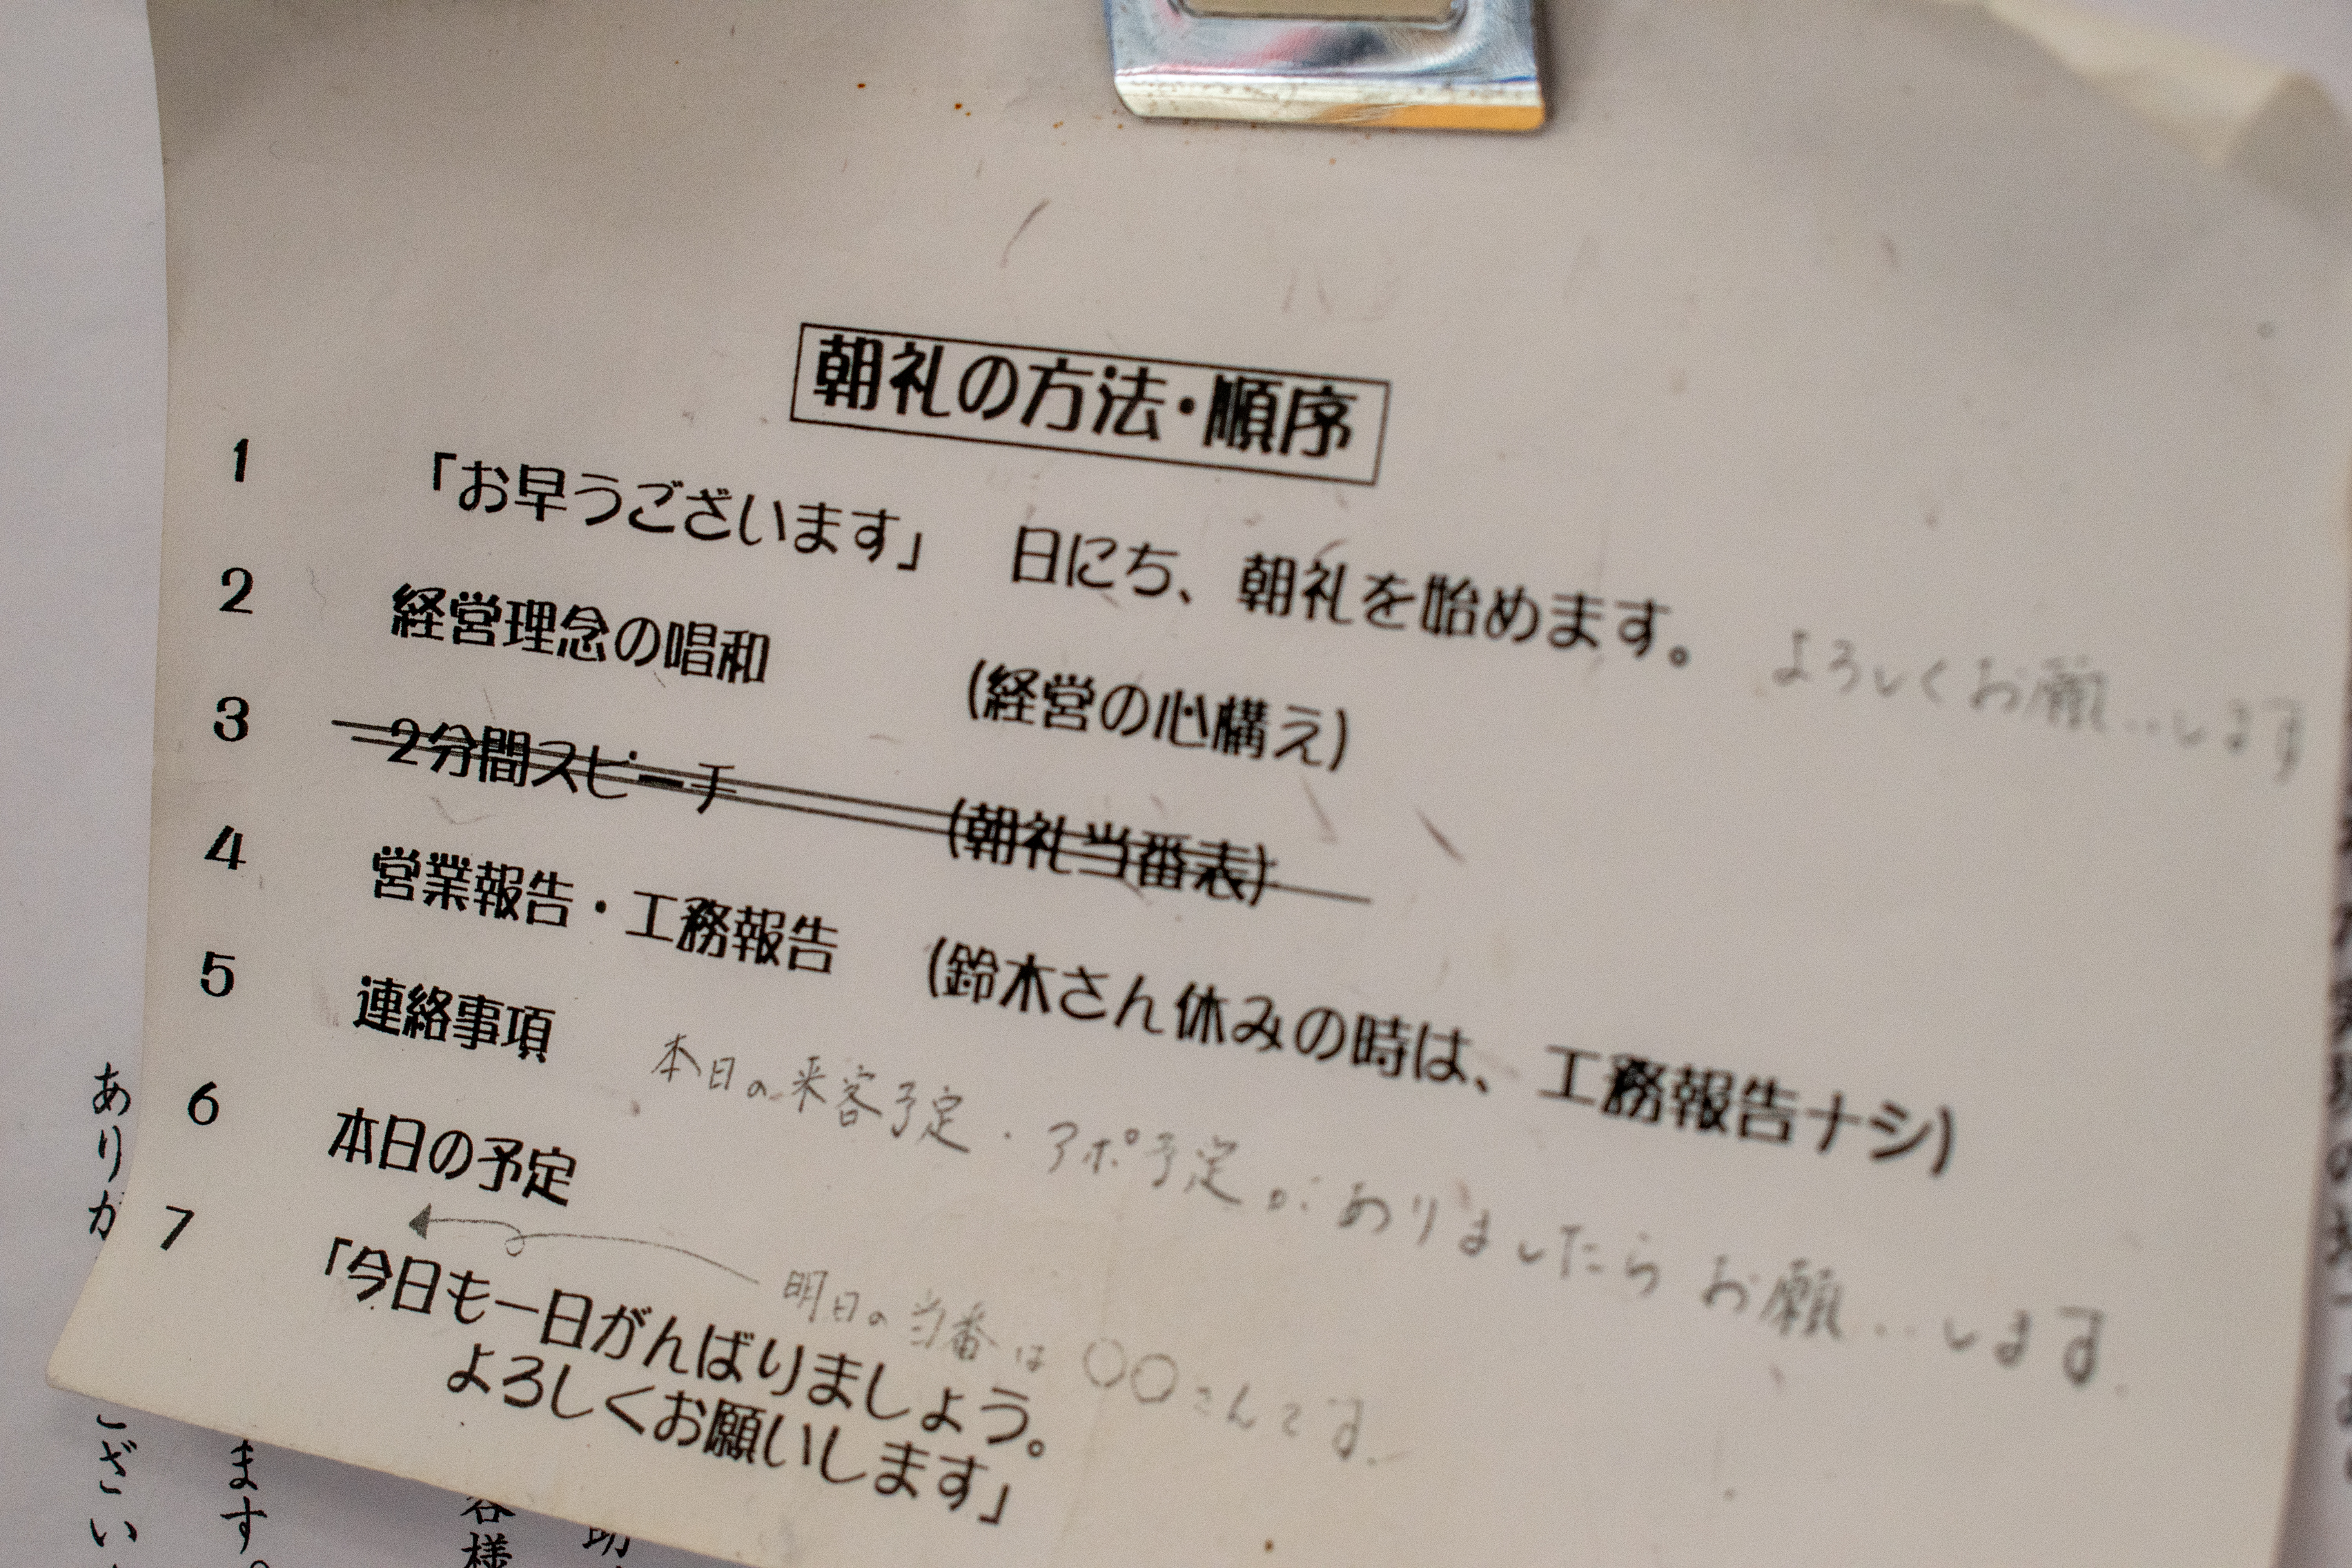 朝礼の方法・順序
1 「お早うございます」 日にち、朝礼を始めます。 よろしくお願いします
2 経営理念の唱和 (経営の心構え)
3 2分間スピーチ (朝礼当番表)
4 営業報告・工務報告 (鈴木さん休みの時は、工務報告ナシ)
5 連絡事項 本日の来客予定・アポ予定がありましたらお願いします。
6 本日の予定
明日の当番は○○さんです。
7 「今日も一日がんばりましょう。
よろしくお願いします」
ありが
ござい
ます。
客様
助